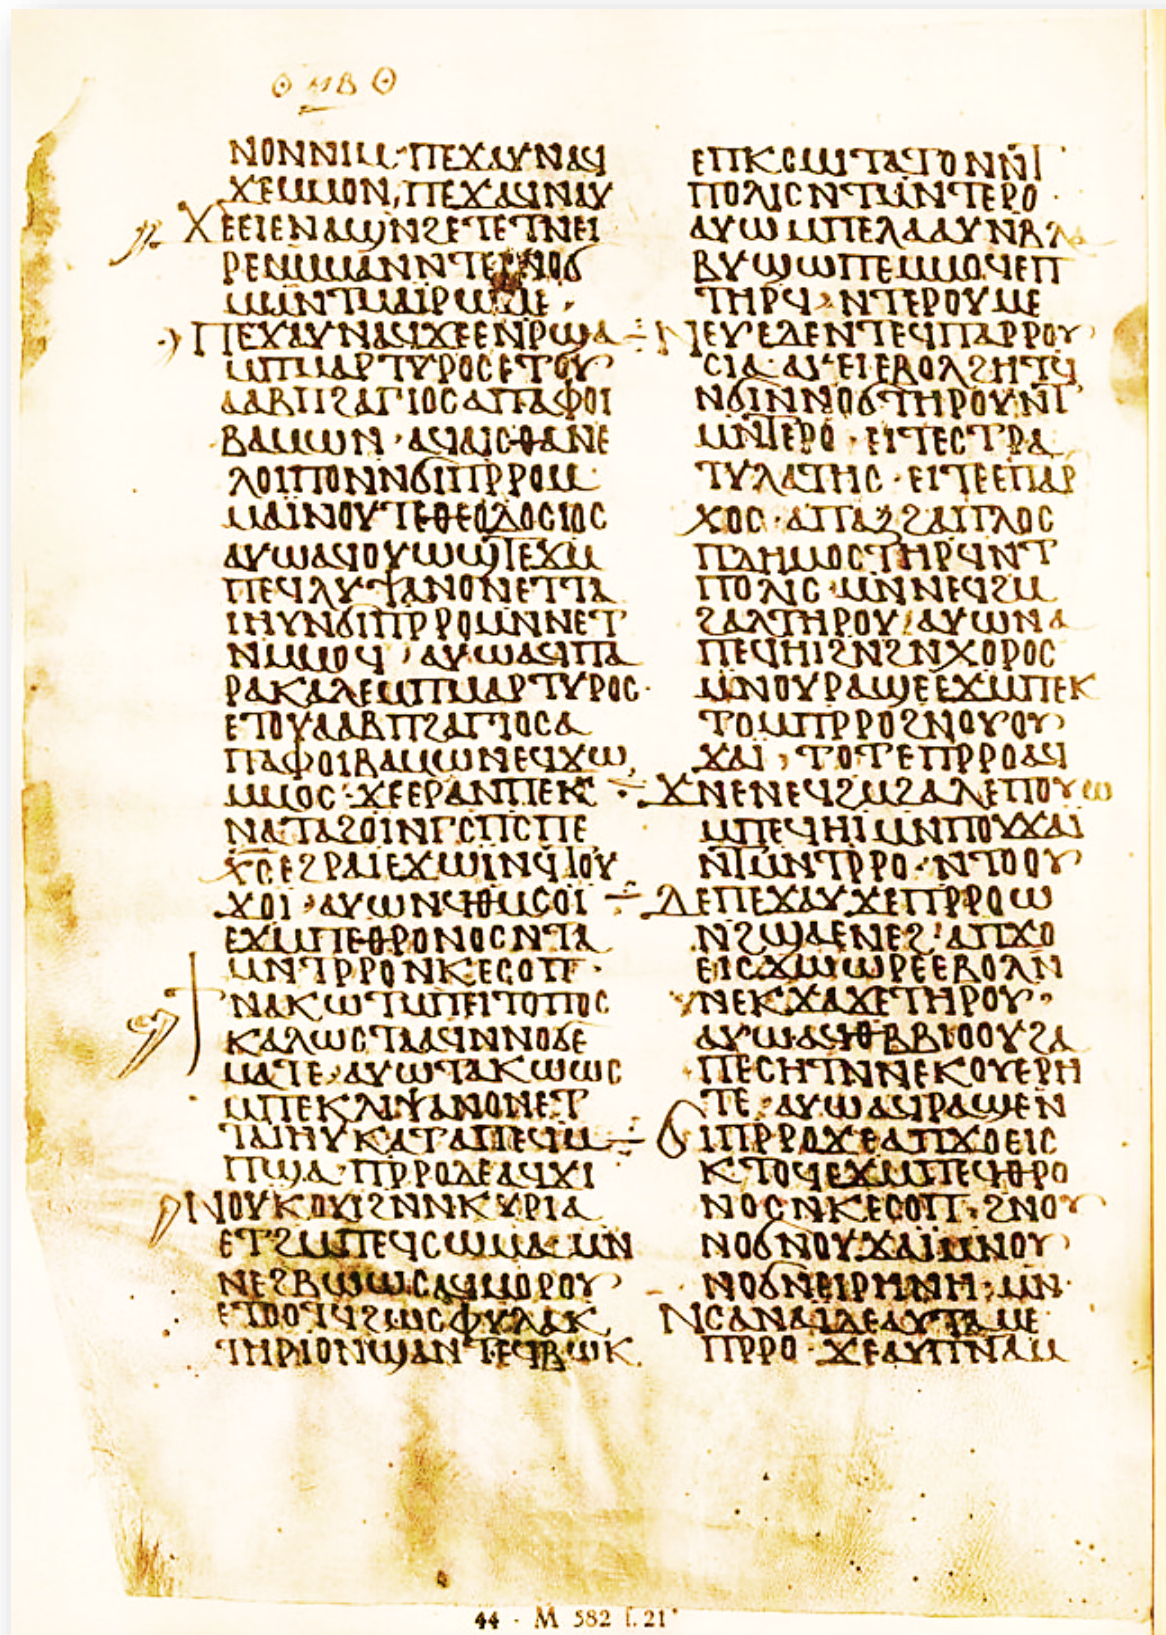 ⲘⲂ
ⲚⲞⲚⲚⲓⲙ· ⲡⲉϫⲁⲩⲛⲁϥ
ϫⲉⲙⲙⲟⲛ, ⲡⲉϫⲁϥⲛⲁⲩ
ϫⲉⲉⲓⲉⲛⲁϣⲛϩⲉⲧⲉⲧⲛⲉⲓ
ⲣⲉⲙⲙⲁⲛⲛⲧⲉ ⲛⲟϭ
ⲙⲙⲛⲧⲙⲁⲓⲣⲱⲙⲉ·
ⲡⲉϫⲁⲩⲛⲁϥϫⲉⲉⲛⲣϣⲁ
ⲙⲡⲙⲁⲣⲧⲩⲣⲟⲥⲉⲧⲟⲩ
ⲁⲁⲃⲡϩⲁⲅⲓⲟⲥⲁⲡⲁⲫⲟⲓ
ⲃⲁⲙⲱⲛ· ⲁϥⲁⲓⲥⲑⲁⲛⲉ
ⲗⲟⲓⲡⲟⲛⲛϭⲓⲡⲣⲣⲟⲙ
ⲙⲁⲓⲛⲟⲩⲧⲉⲑⲉⲟⲇⲟⲥⲓⲟⲥ
ⲁⲩⲱⲁϥⲟⲩⲱϣⲧⲉϫⲙ
ⲡⲉϥⲗⲩⲯⲁⲛⲟⲛⲉⲧⲧⲁ
ⲓⲏⲩⲛϭⲓⲡⲣⲣⲟⲙⲛⲛⲉⲧ
ⲛⲙⲙⲟϥ, ⲁⲩⲱⲁϥⲡⲁ
ⲣⲁⲕⲁⲗⲉⲙⲡⲙⲁⲣⲧⲩⲣⲟⲥ·
ⲉⲧⲟⲩⲁⲁⲃⲡϩⲁⲅⲓⲟⲥⲁ
ⲡⲁⲫⲟⲓⲃⲁⲙⲱⲛⲉϥϫⲱ
ⲙⲙⲟⲥ· ϫⲉⲉⲣⲁⲛⲡⲉⲕ
ⲛⲁⲧⲁϩⲟⲓⲛⲅⲥⲡⲥⲡⲡⲉ
ⲭ̅ⲥ̅ⲉϩⲣⲁⲓⲉϫⲱⲓⲛϥⲧⲟⲩ
ϫⲟⲓ· ⲁⲩⲱⲛϥⲑⲙⲥⲟⲓ
ⲉϫⲙⲡⲉⲑⲣⲟⲛⲟⲥⲛⲧⲁ
ⲙⲛⲧⲣⲣⲟⲛⲕⲉⲥⲟⲡ·
ϯⲛⲁⲕⲱⲧⲙⲡⲉⲓⲧⲟⲡⲟⲥ
ⲕⲁⲗⲱⲥⲧⲁⲁϥⲛⲛⲟϭⲉ
ⲙⲁⲧⲉ, ⲁⲩⲱⲧⲁⲕⲱⲱⲥ
ⲙⲡⲉⲕⲗⲓⲯⲁⲛⲟⲛⲉⲧ
ⲧⲁⲓⲏⲩⲕⲁⲧⲁⲡⲉϥⲙ
ⲡϣⲁ· ⲡⲣⲣⲟⲇⲉⲁϥϫⲓ
ⲛⲟⲩⲕⲟⲩⲓϩⲛⲛⲕⲩⲣⲓⲁ
ⲉⲧϩⲙⲡⲉϥⲥⲱⲙⲁ· ⲙⲛ
ⲛⲉϩⲃⲱⲱⲥⲁϥⲙⲟⲣⲟⲩ
ⲉⲧⲟⲟⲧϥϩⲱⲥⲫⲩⲗⲁⲕ
ⲧⲏⲣⲓⲟⲛϣⲁⲛⲧⲉϥⲃⲱⲕ
ⲉⲡⲕⲥⲙⲧⲁⲧⲟⲛⲛⲓ
ⲡⲟⲗⲓⲥⲛⲧⲙⲛⲧⲉⲣⲟ·
ⲁⲩⲱⲙⲡⲉⲗⲁⲁⲩⲛⲃⲗ
ⲃⲩϣⲱⲡⲉⲙⲙⲟϥⲉⲡ
ⲧⲏⲣϥ, ⲛⲧⲉⲣⲟⲩⲙⲉ
ⲛⲉⲩⲉⲇⲉⲛⲧⲉϥⲡⲁⲣⲣⲟⲩ
ⲥⲓⲁ· ⲁⲩⲉⲓⲉⲃⲟⲗϩⲏⲧϥ
ⲛϭⲓⲛⲛⲟϭⲧⲏⲣⲟⲩⲛⲧ
ⲙⲛⲧⲉⲣⲟ· ⲉⲓⲧⲉⲥⲧⲣⲁ
ⲧⲩⲗⲁⲧⲏⲥ· ⲉⲓⲧⲉⲉⲡⲁⲣ
ⲭⲟⲥ· ⲁⲡⲁⲝϩⲁⲡⲗⲟⲥ
ⲡⲗⲏⲙⲟⲥⲧⲏⲣϥⲛⲧ
ⲡⲟⲗⲓⲥ· ⲙⲛⲛⲉϥϩⲙ
ϩⲁⲗⲧⲏⲣⲟⲩ, ⲁⲩⲱⲛⲁ
ⲡⲉϥⲏⲓϩⲛϩⲛⲭⲟⲣⲟⲥ
ⲙⲛⲟⲩⲣⲁϣⲉⲉϫⲙⲡⲉⲕ
ⲧⲟⲙⲡⲣⲣⲟϩⲛⲟⲩⲟⲩ
ϫⲁⲓ, ⲧⲟⲧⲉⲡⲣⲣⲟⲁϥ
ϫⲛⲉⲛⲉϥϩⲙϩⲁⲗⲉⲡⲟⲩⲱ
ⲙⲡⲉϥⲏⲓⲙⲛⲡⲟⲩϫⲁⲓ
ⲛⲧⲙⲛⲧⲣⲣⲟ· ⲛⲧⲟⲟⲩ
ⲇⲉⲡⲉϫⲁⲩϫⲉⲡⲣⲣⲟⲱ
ⲛϩϣⲁⲉⲛⲉϩ· ⲁⲡϫⲟ
ⲉⲓⲥϫⲱⲱⲣⲉⲉⲃⲟⲗⲛ
ⲛⲉⲕϫⲁϫⲉⲧⲏⲣⲟⲩ·
ⲁⲩⲱⲁϥⲑⲃⲃⲓⲟⲟⲩϩⲁ
ⲡⲉⲥⲏⲧⲛⲛⲉⲕⲟⲩⲉⲣⲏ
ⲧⲉ, ⲁⲩⲱⲁϥⲣⲁϣⲉⲛ
ϭⲓⲡⲣⲣⲟϫⲉⲁⲡϫⲟⲉⲓⲥ
ⲕⲧⲟϥⲉϫⲙⲡⲉϥⲑⲣⲟ
ⲛⲟⲥⲛⲕⲉⲥⲟⲡ, ϩⲛⲟⲩ
ⲛⲟϭⲛⲟⲩϫⲁⲓⲙⲛⲟⲩ
ⲛⲟϭⲛⲉⲓⲣⲏⲛⲏ, ⲙⲛ
ⲛⲥⲁⲛⲁⲓⲇⲉⲁⲩⲧⲁⲙⲉ
ⲡⲣⲣⲟ· ϫⲉⲁⲩⲡⲛⲁⲙ
44 - M 582 f. 21ʳ